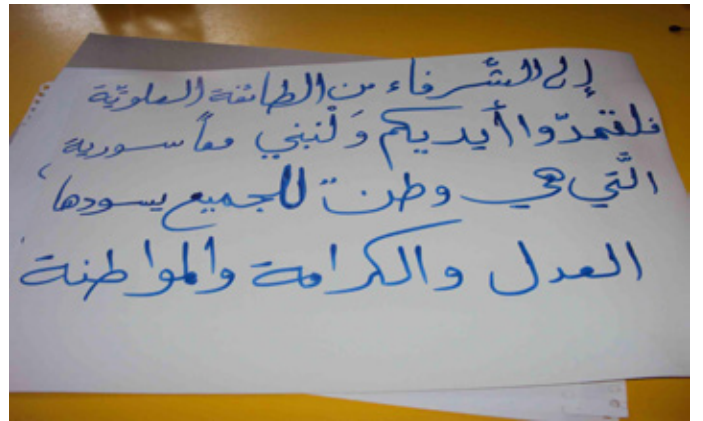 إلى الشّرفاء من الطائفة العلويّة
فلتمدّوا أيديكم وَلْنبني معاً سورية
الّتي هي وطن للجميع يسودها
العدل والكرامة والمواطنة